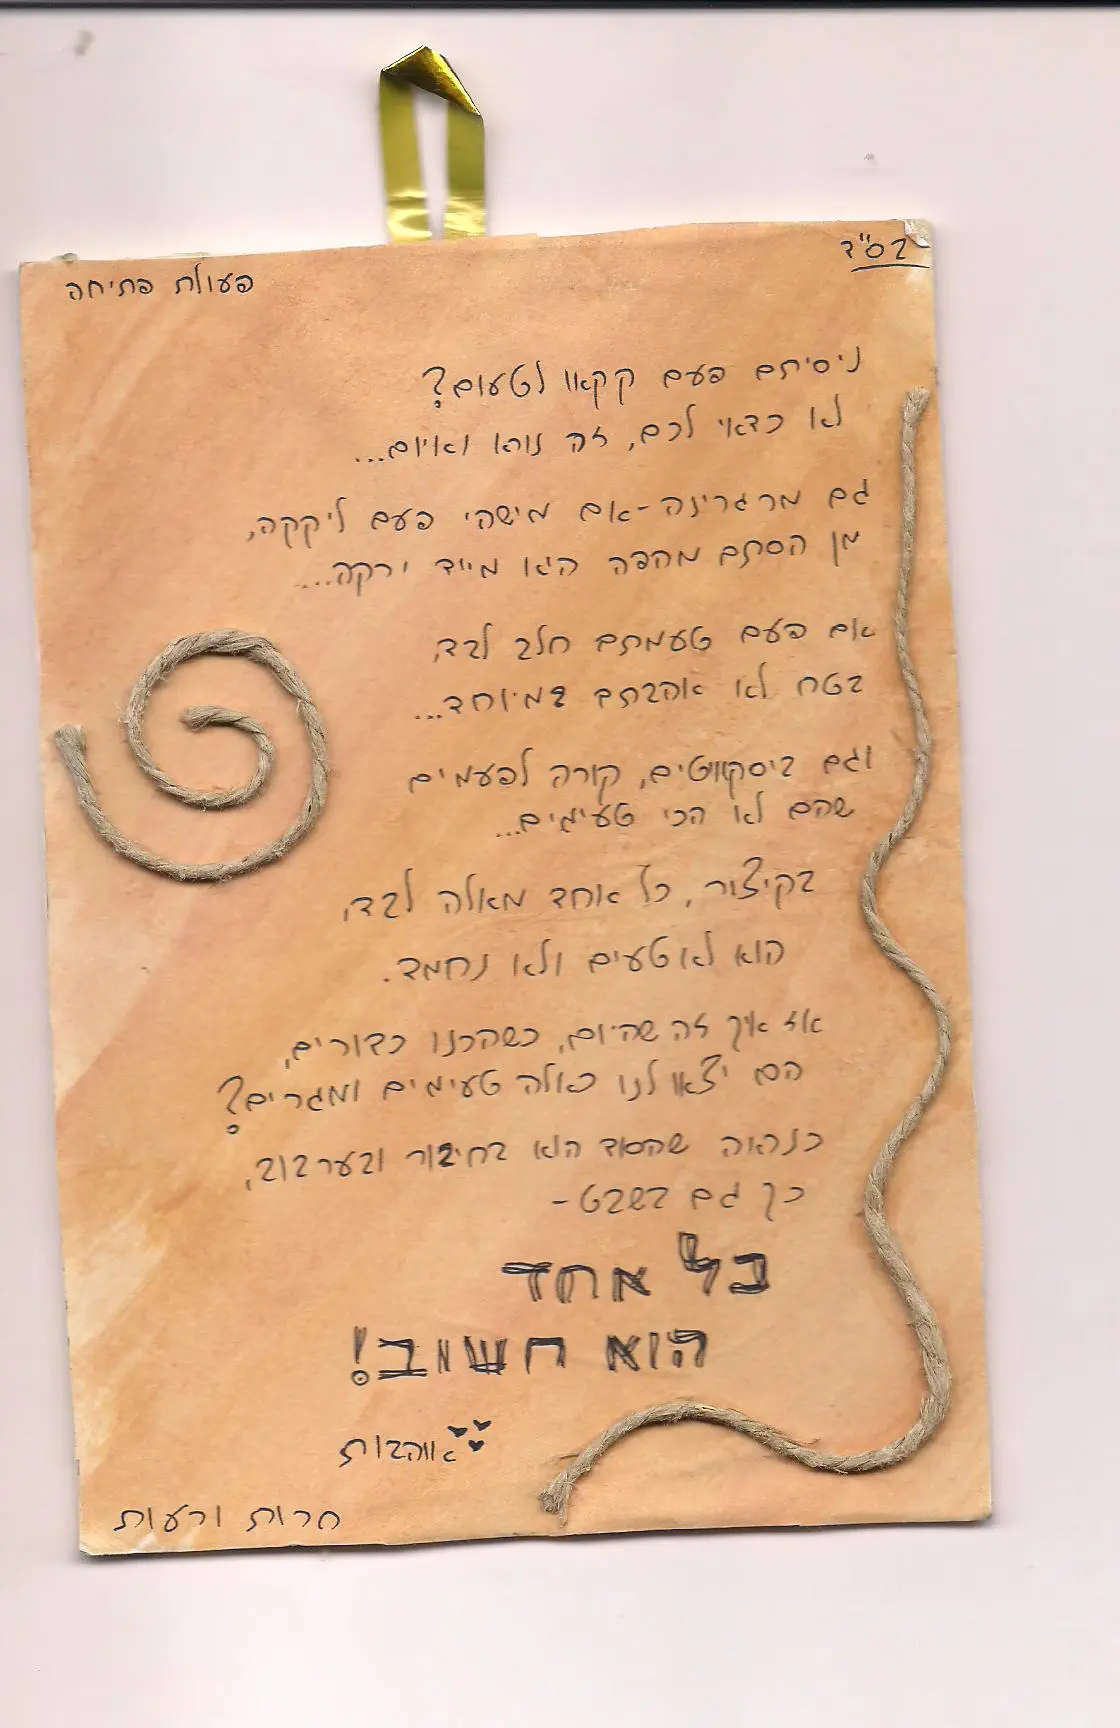 בס"ד
פעולת פתיחה
ניסיתם פעם קקאו לטעום?
לא כדאי לכם, זה נורא ואיום...
גם מרגרינה-אם מישהי פעם ליקקה,
מן הסתם מהפה היא מייד ירקה....
אם פעם טעמתם חלב לבד,
בטח לא אהבתם במיוחד...
וגם ביסקוויטים, קורה לפעמים
שהם לא הכי טעימים...
בקיצור, כל אחד מאלה לבד,
הוא לא טעים ולא נחמד.
אז איך זה שהיום, כשהכנו כדורים,
הם יצאו לנו כאלה טעימים ומגרים?
כנראה שהסוד הוא בחיבור ובערבוב,
כך גם בשבט-
כל אחד
הוא חשוב!
אוהבות
חרות ורעות